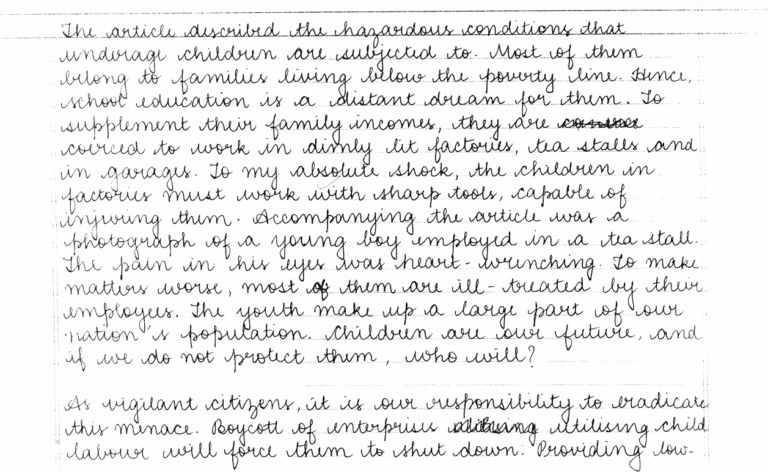 The article described the hazardous conditions that
underage children are subjected to. Most of them
belong to families living below the poverty line. Hence,
school education is a distant dream for them. To
supplement their family incomes, they are
coerced to work in dimly lit factories, tea stalls and
in garages. To my absolute shock, the children in
factories must work with sharp tools, capable of
injuring them. Accompanying the article was a
photograph of a young boy employed in a tea stall.
The pain in his eyes was heart-wrenching. To make
matters worse, most of them are ill-treated by their
employees. The youth make up a large part of our
nation's population. Children are our future, and
if we do not protect them, who will?
As vigilant citizens, it is our responsibility to eradicate
this menace. Boycott of enterprise utilising child
labour will force them to shut down. Providing low-